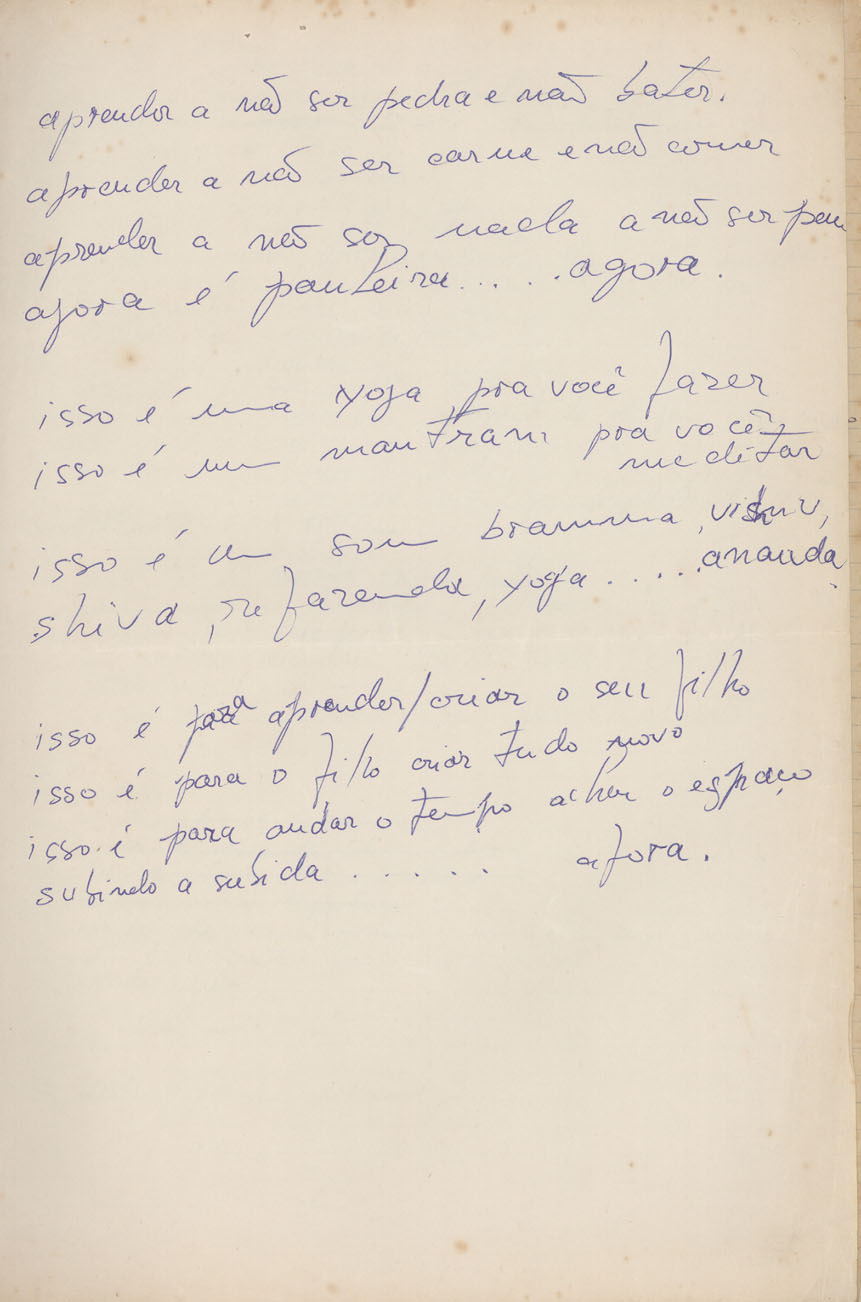 aprender a não ser pedra e não bater.
aprender a não ser carne e não comer
aprender a não ser nada a não ser pau
agora é pauleira.... .agora.
isso é uma yoga pra você fazer
isso é um mantram pra você
meditar
isso é um som bramma, vishnu,
shiva, refazenda, yoga ..... ananda.
isso é para aprender/criar o seu filho
isso é para o filho criar tudo novo
isso é para andar o tempo achar o espaço
subindo a subida ...... agora.